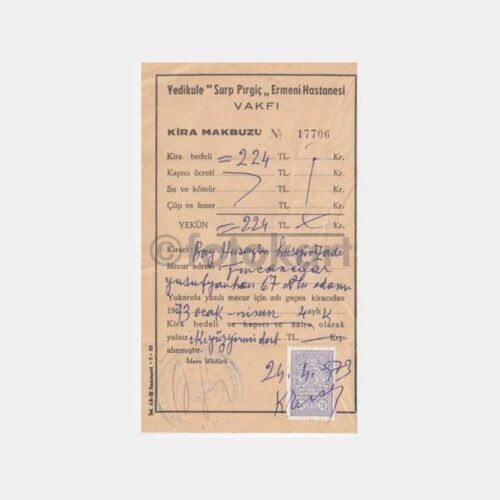 Yedikule "Surp Pırgiç„ Ermeni Hastanesi
VAKFI
KİRA MAKBUZU № 17706
Kira bedeli = 224 TL. Kr.
Kapıcı ücreti TL. Kr.
Su ve kömür TL. Kr.
Çöp ve fener TL. Kr.
YEKÛN =224 TL. Kr.
©fotokart
Kiracı Bay Huseyin
Mecur adresi Fincancılar
yusufyan han 67 odanın
Yukarıda yazılı mecur için adı geçen kiracıdan
1973 ocak-nisan 4 aylık
Kira bedeli ve kapıcı ve saire olarak
yalnız ikiyüzyirmidört Krş.
alınmıştır.
İdare Müdürü
24.4.973